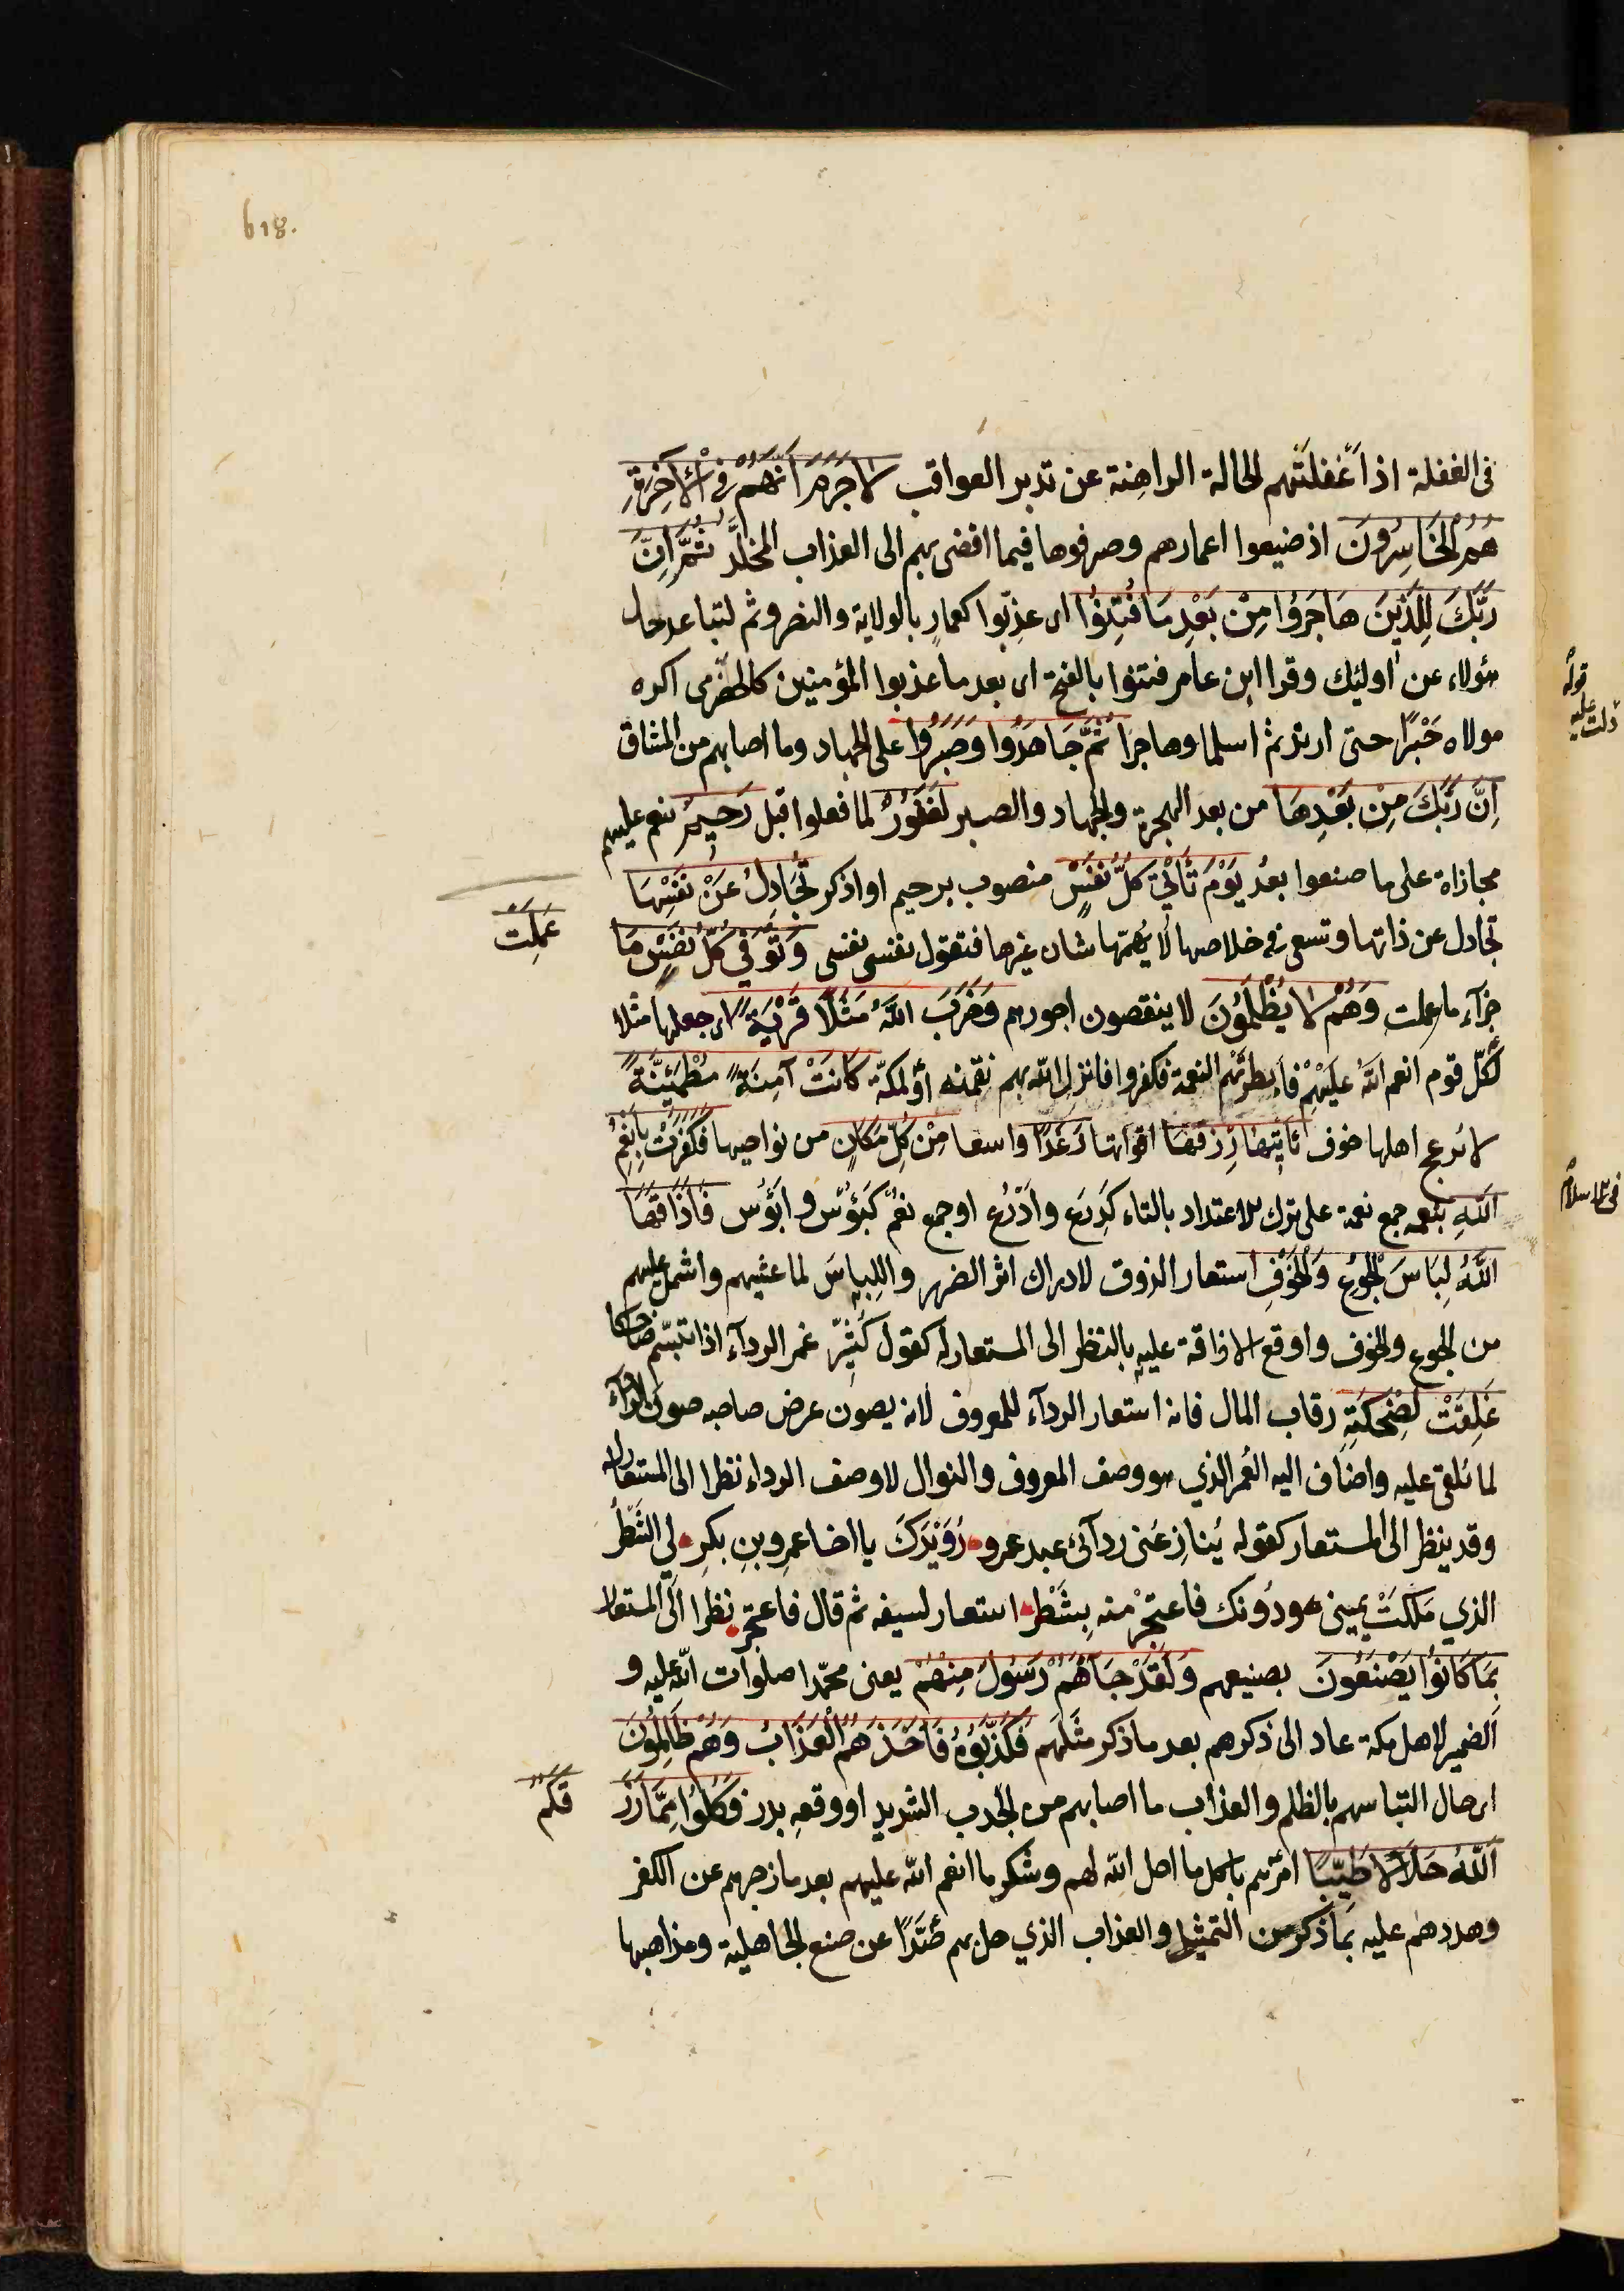 618.
في الغفلة اذ اَغْفلَتْهم الحالة الراهِنة عن تدبر العواقب لَا جَرَمَ اَنَّهُمْ فِي الْاٰخِرَةِ
هُمُ الْخَاسِرُونَ اذ ضيعوا اعمارهم وصرفوها فيما افضى بهم الى العذاب المخلَّد ثُمَّ اِنَّ
رَبَّكَ لِلَّذِينَ هَاجَرُوا مِنْ بَعْدِ مَا فُتِنُوا اى عذّبوا كعمارٍ بالولاية والنصر وثم لتباعد حال
هؤلاء عن اُولئِك وقرا ابن عامر فتنوا بالفتح اى بعد ما عذبوا المؤمنين كالحَضْرمى اكره
مولاه جَبْرًا حتى ارتد ثم اسلما وهاجرا ثُمَّ جَاهَدُوا وَصَبَرُوا على الجهاد وما اصابهم من المشاق
اِنَّ رَبَّكَ مِنْ بَعْدِهَا من بعد الهجرة والجهاد والصبر لَغَفُورٌ لما فعلوا قبل رَحِيمٌ ينعم عليهم
مجازاة على ما صنعوا بعدُ يَوْمَ تَأْتِي كُلُّ نَفْسٍ منصوب برحيم او اذكر تُجَادِلُ عَنْ نَفْسِهَا
تجادل عن ذاتها وتسعى في خلاصها لا يُهمّها شان غيرها فتقول نفسى نفسى وَتُوَفّٰى كُلُّ نَفْسٍ مَا
عَمِلَتْ
جزآء ما عملت وَهُمْ لَا يُظْلَمُونَ لا ينقصون اجورهم وَضَرَبَ اللّٰهُ مَثَلًا قَرْيَةً اى جعلها مثلا
لكُلّ قوم انعم اللّٰه عَلَيْهِمْ فاَبطرتْهم النعمة فكفروا فانزل اللّٰه بهم نقمته اَوْ لمكّة كَانَتْ آمِنَةً مُطْمَئِنَّةً
لا يُزعج اهلها خوف يَأْتِيهَا رِزْقُهَا اقواتها رَغَدًا واسعا مِنْ كُلِّ مَكَانٍ من نواحيها فَكَفَرَتْ بِاَنْعُمِ
اللّٰهِ بنعمه جمع نعمة على ترك الاعتداد بالتاء كَدِرْع واَدْرُع او جمع نُعْم كَبُؤْس واَبْؤُس فَاَذَاقَهَا
اللّٰهُ لِبَاسَ الْجُوعِ وَالْخَوْفِ استعار الذوق لادراك اثر الضرر واللِباسَ لما غشيهم واشتمل عليهم
من الجوع والخوف واوقع الاذاقة عليه بالنظر الى المستعار له كقول كُثيّر غمر الردآء اذا تبسّم ضاحكا
غَلِقَتْ لِضَحْكَتِهِ رقاب المال فانه استعار الردآء للمعروف لانه يصون عرض صاحبه صون الردآء
لما يُلقى عليه واضاف اليه الغمر الذي هو وصف المعروف والنوال لا وصف الرداء نظرا الى المستعار له
وقد ينظر الى المستعار كقوله يُنازِعُنى ردآئى عبد عمرو رُوَيْدَكَ يا اخا عمرِو بنِ بكرِ لي الشَّطْرُ
الذي مَلكتْ يمينى ودُونك فاعتجِرْ منه بِشَطْرِ استعار لسيفه ثم قال فاعتجر نظرا الى المستعار
بِمَا كَانُوا يَصْنَعُونَ بصنيعهم وَلَقَدْ جَاءَهُمْ رَسُولٌ مِنْهُمْ يعنى محمّدا صلوات اللّٰه عليه و
الضمير لاهل مكة عاد الى ذكرهم بعد ما ذكر مثَلَهم فَكَذَّبُوهُ فَاَخَذَهُمُ الْعَذَابُ وَهُمْ ظَالِمُونَ
اى حال التباسهم بالظلم والعذاب ما اصابهم من الجدب الشديد او وقعة بدر فَكُلُوا مِمَّا رَزَ
قَكُمُ
اللّٰهُ حَلَالًا طَيِّبًا امرَهم باكل ما احل اللّٰه لهم وشكرِ ما انعم اللّٰه عليهم بعد ما زجرهم عن الكفر
وهددهم عليه بما ذكر من التمثيل والعذاب الذي حل بهم صَدًّا عن صنع الجاهلية ومذاهبها
قوله
دلت عليه